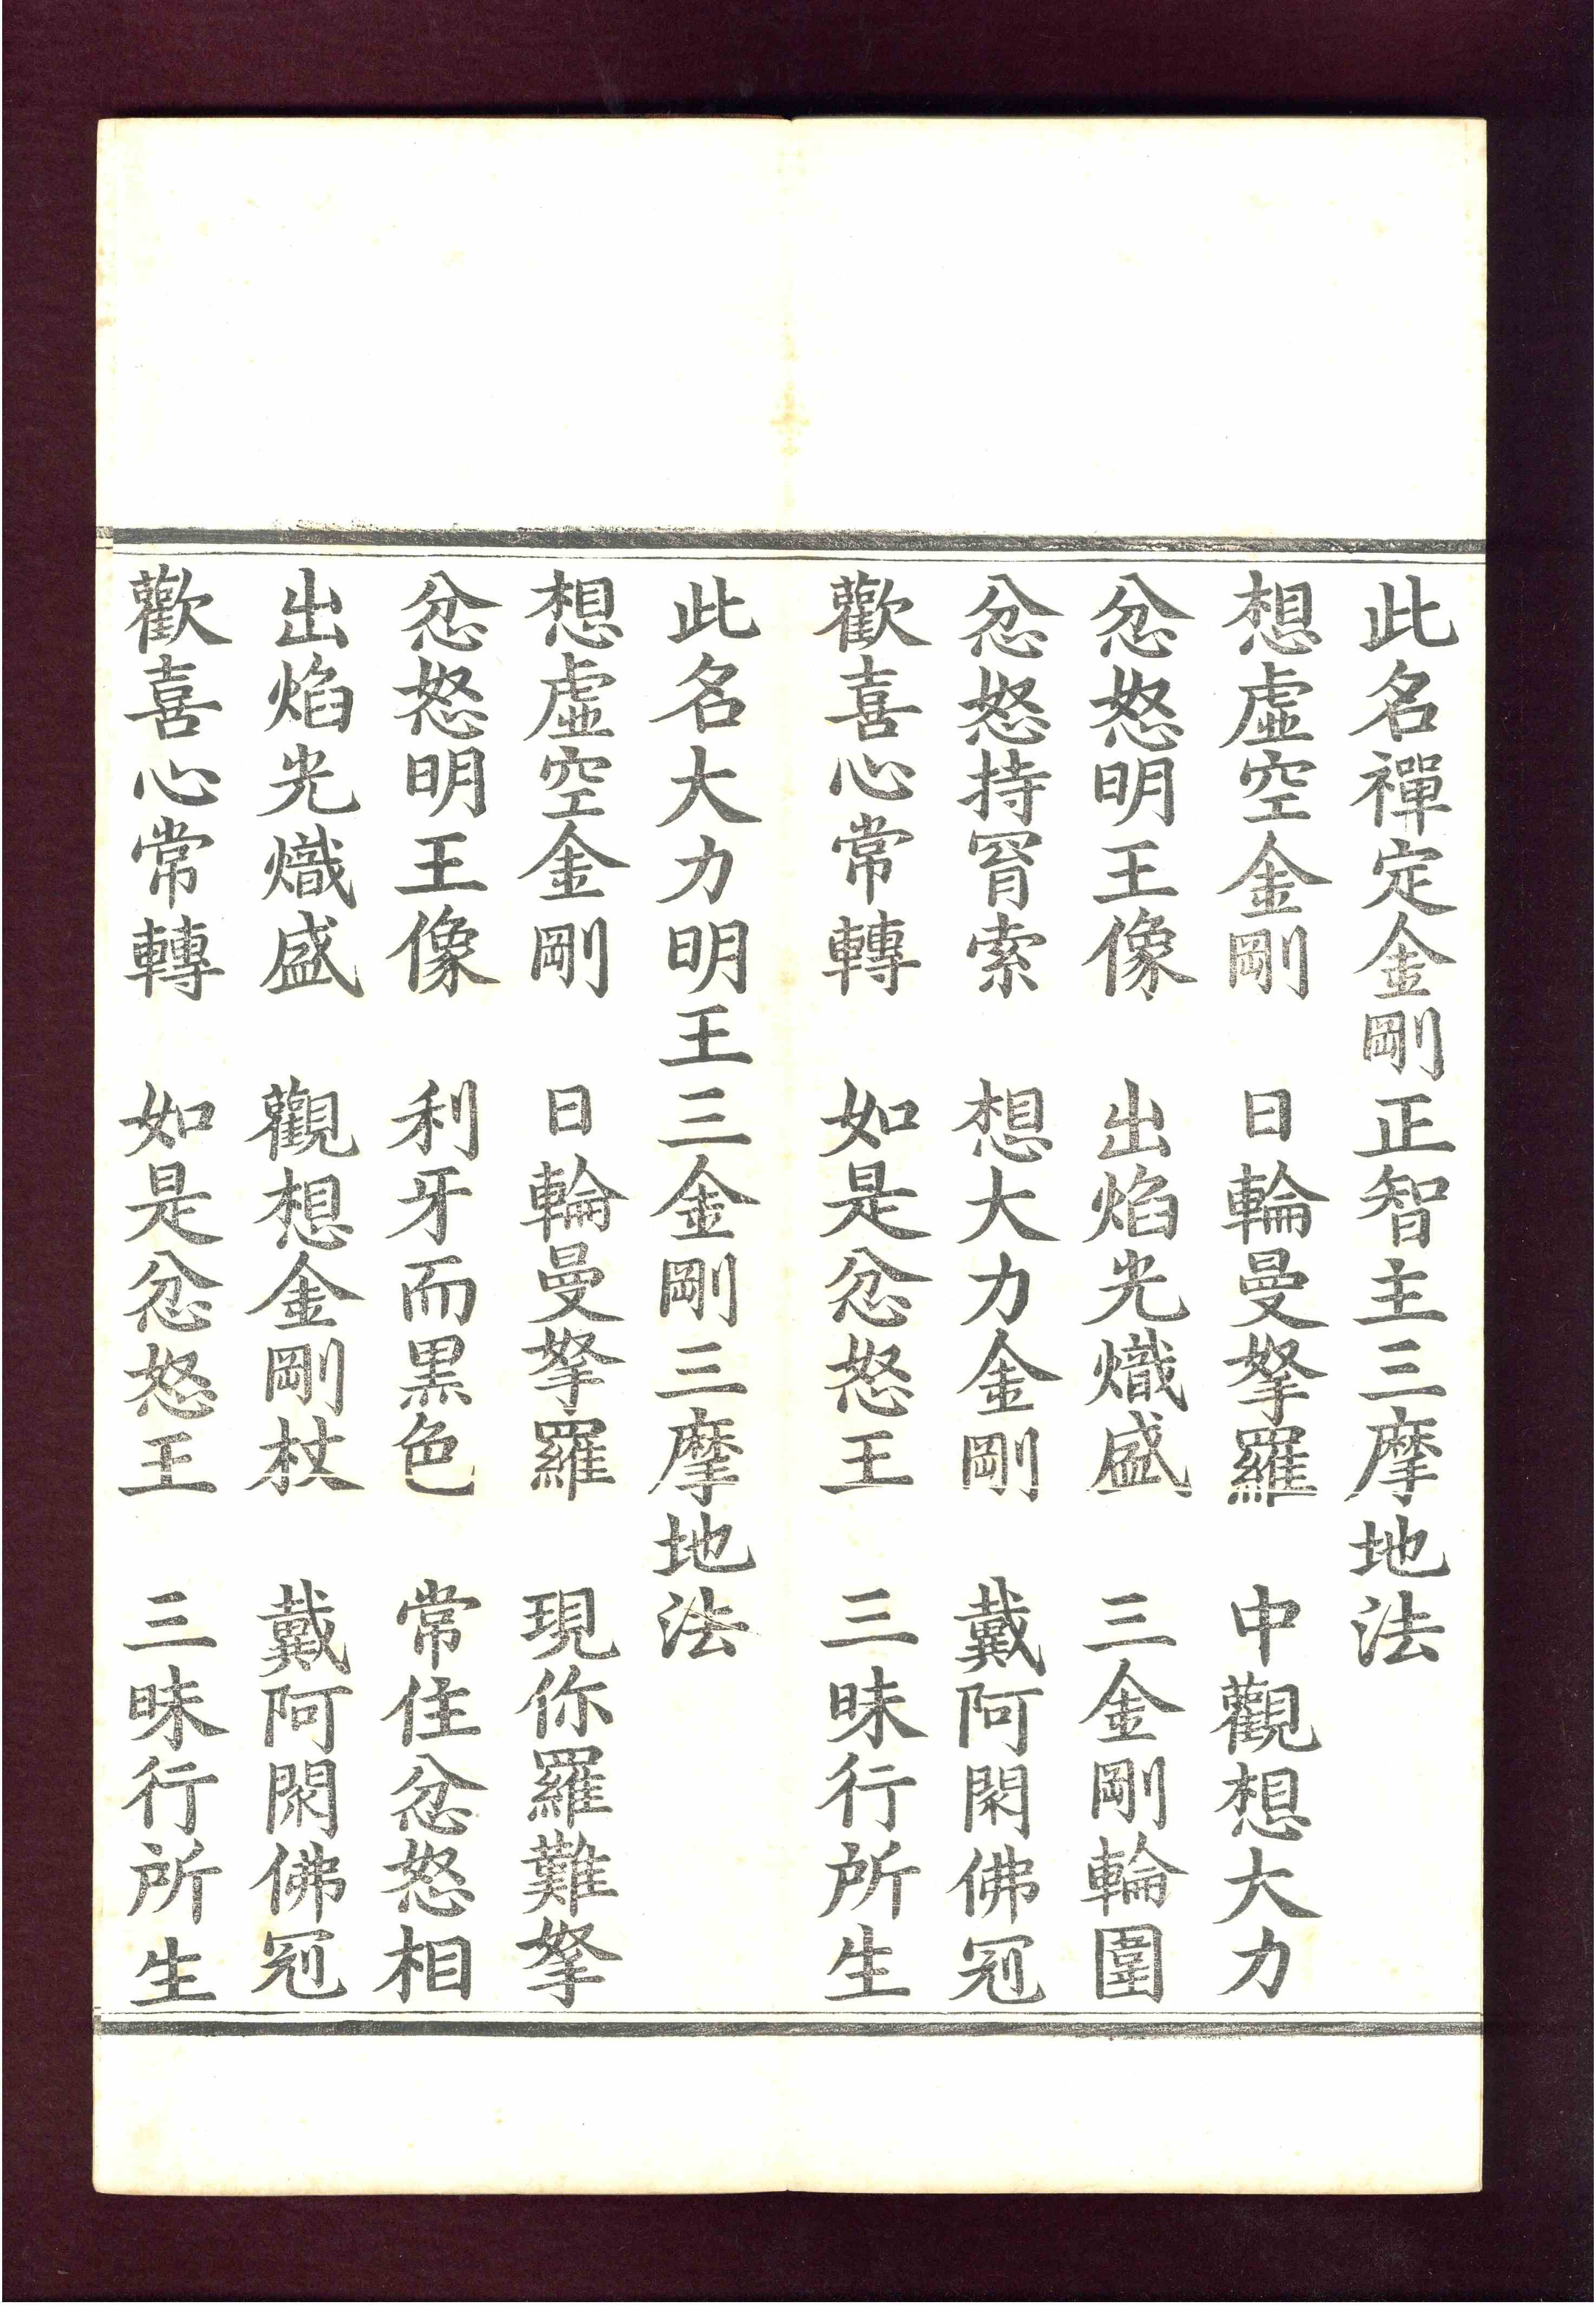 此名禪定金剛正智主三摩地法
想虛空金剛　日輪曼拏羅　中觀想大力
忿怒明王像　出焰光熾盛　三金剛輪圍
忿怒持罥索　想大力金剛　戴阿閦佛冠
歡喜心常轉　如是忿怒王　三昧行所生
此名大力明王三金剛三摩地法
想虛空金剛　日輪曼拏羅　現你羅難拏
忿怒明王像　利牙而黑色　常住忿怒相
出焰光熾盛　觀想金剛杖　戴阿閦佛冠
歡喜心常轉　如是忿怒王　三昧行所生